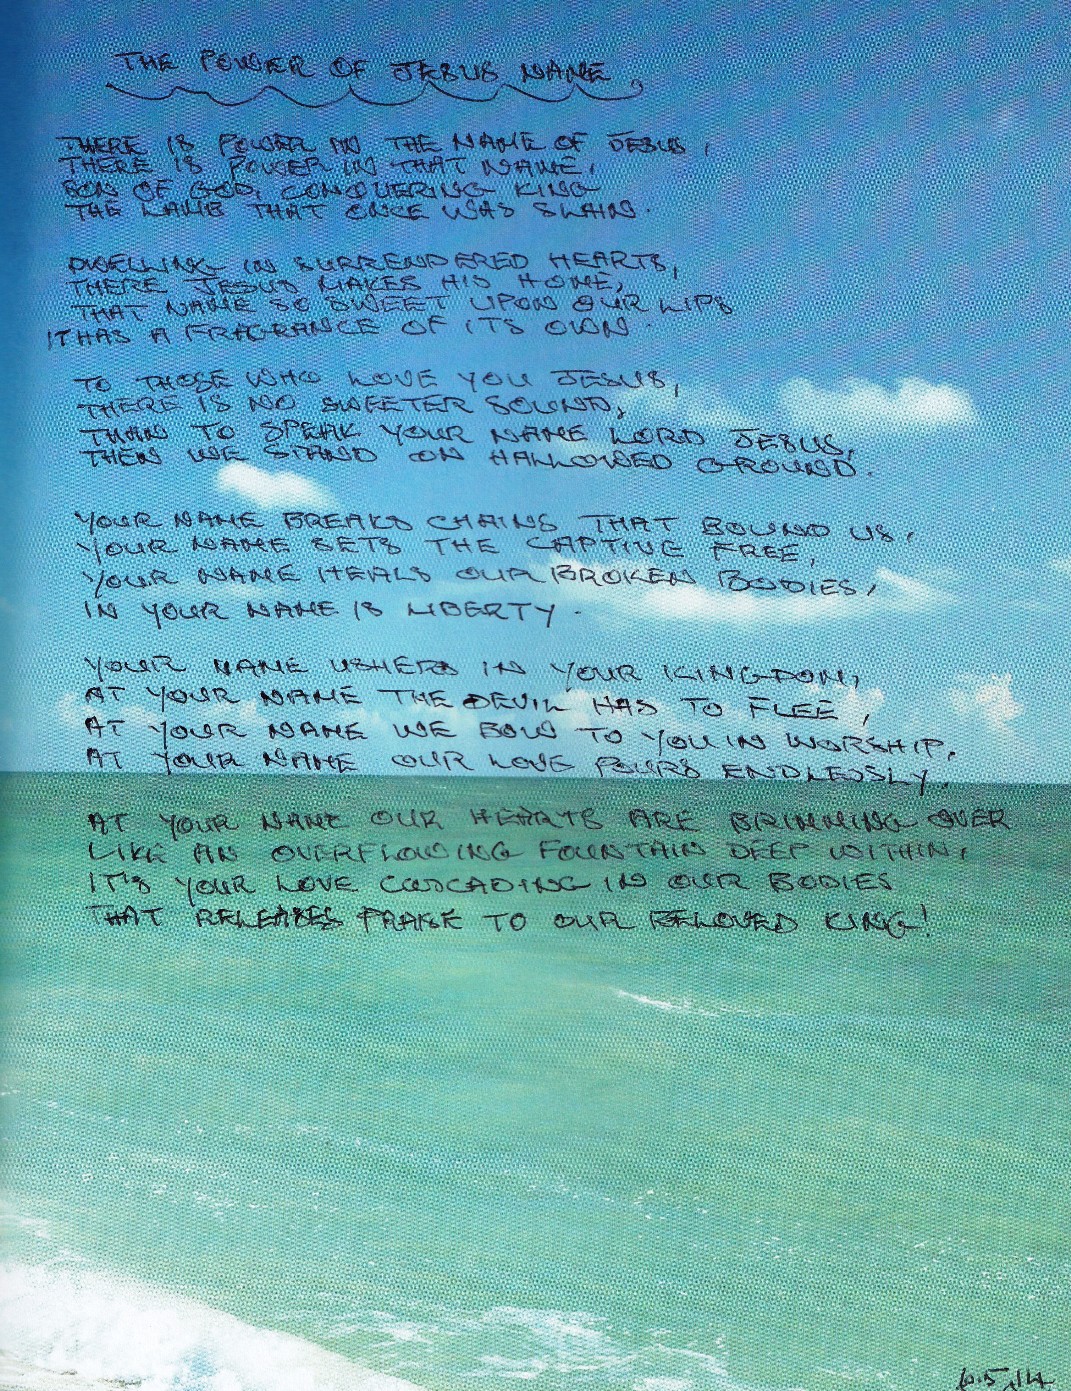 THE POWER OF JESUS NAME.
THERE IS POWER IN THE NAME OF JESUS,
THERE IS POWER IN THAT NAME,
SON OF GOD, CONQUERING KING
THE LAMB THAT ONCE WAS SLAIN.
DWELLING IN SURRENDERED HEARTS,
THERE JESUS MAKES HIS HOME,
THAT NAME SO SWEET UPON OUR LIPS
IT HAS A FRAGRANCE OF ITS OWN.
TO THOSE WHO LOVE YOU JESUS,
THERE IS NO SWEETER SOUND,
THAN TO SPEAK YOUR NAME LORD JESUS,
THEN WE STAND ON HALLOWED GROUND.
YOUR NAME BREAKS CHAINS THAT BOUND US,
YOUR NAME SETS THE CAPTIVE FREE,
YOUR NAME HEALS OUR BROKEN BODIES,
IN YOUR NAME IS LIBERTY.
YOUR NAME USHERS IN YOUR KINGDOM,
AT YOUR NAME THE DEVIL HAS TO FLEE,
AT YOUR NAME WE BOW TO YOU IN WORSHIP,
AT YOUR NAME OUR LOVE POURS ENDLESSLY.
AT YOUR NAME OUR HEARTS ARE BRIMMING OVER
LIKE AN OVERFLOWING FOUNTAIN DEEP WITHIN,
IT'S YOUR LOVE CASCADING IN OUR BODIES
THAT RELEASES PRAISE TO OUR BELOVED KING!